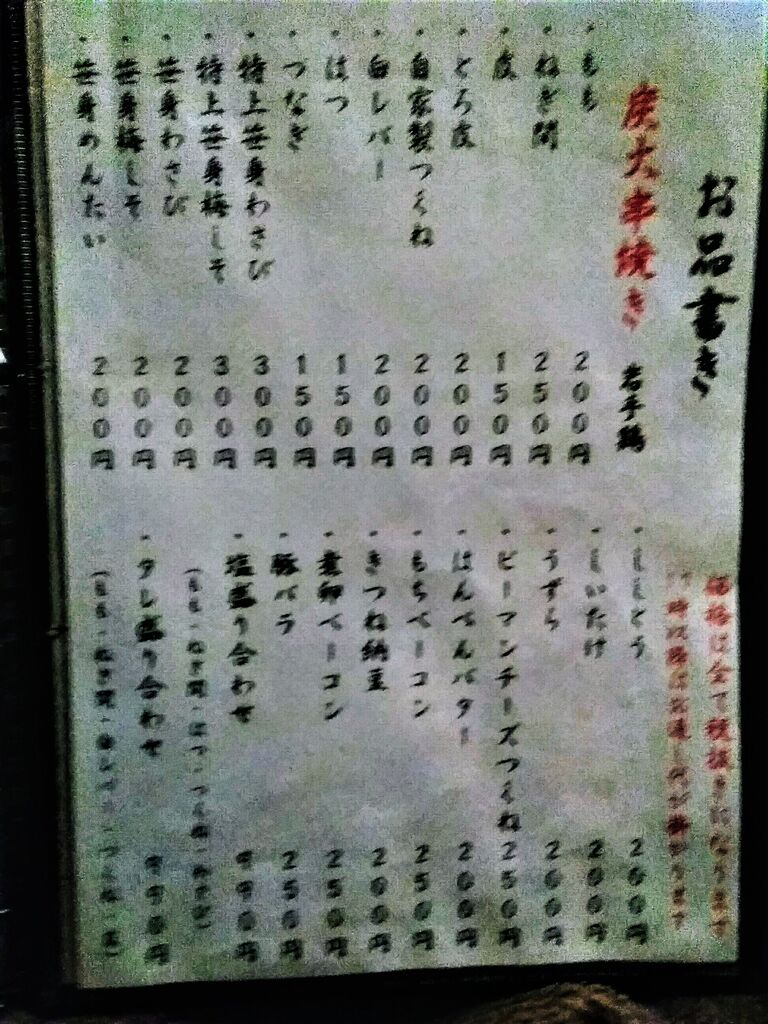 お品書き
価格は全て税抜きになります
炭火串焼き 若手鶏
・もも 200円
・ねぎ間 250円
・皮 150円
・とろ皮 200円
・自家製つくね 200円
・白レバー 200円
・はつ 150円
・つなぎ 150円
・特上笹身わさび 300円
・特上笹身梅しそ 300円
・笹身わさび 200円
・笹身梅しそ 200円
・笹身めんたい 200円
・ししとう 200円
・しいたけ 200円
・うずら 200円
・ピーマンチーズつくね 250円
・はんぺんバター 200円
・もちベーコン 250円
・きつね納豆 200円
・煮卵ベーコン 250円
・豚バラ 250円
・塩盛り合わせ 990円
・タレ盛り合わせ 990円